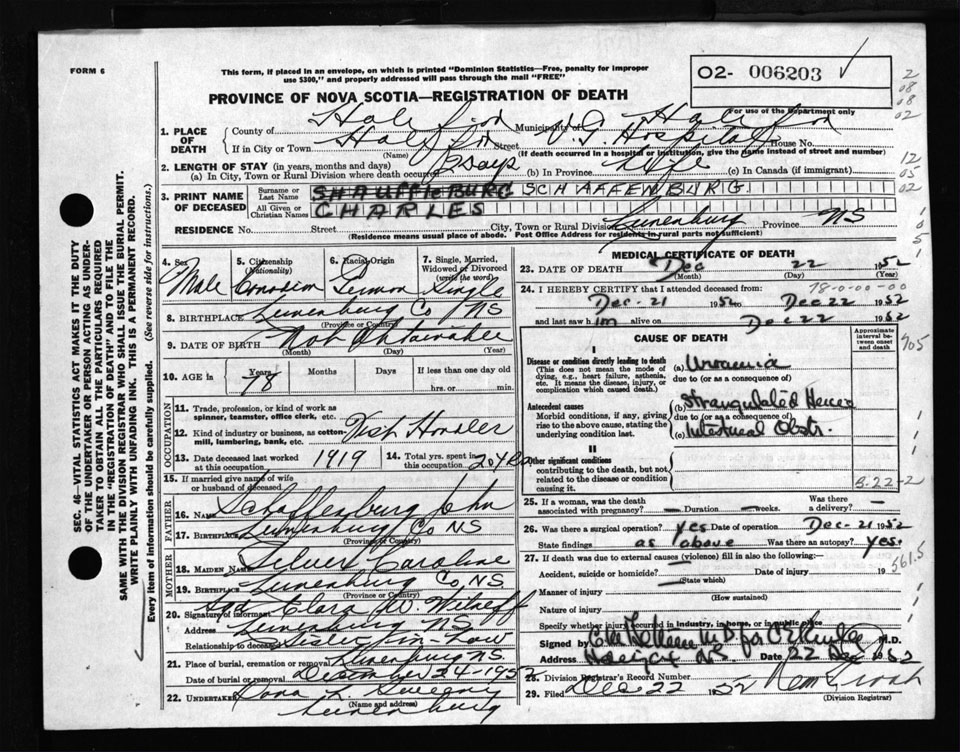 FORM 6
This form, if placed in an envelope, on which is printed "Dominion Statistics—Free, penalty for improper
use $300," and properly addressed will pass through the mail "FREE"
O2- 006203
For use of the Department only
PROVINCE OF NOVA SCOTIA—REGISTRATION OF DEATH
1. PLACE OF DEATH
County of Municipality of
If in City or Town (Name) Street V.G. Hospital House No.
(If death occurred in a hospital or institution, give the name instead of street and number)
2. LENGTH OF STAY (in years, months and days)
(a) In City, Town or Rural Division where death occurred days (b) In Province Life (c) In Canada (if immigrant)
3. PRINT NAME OF DECEASED
Surname or Last Name SHAUFFLEBURG SCHAFFENBURG
All Given or Christian Names CHARLES
RESIDENCE No. Street City, Town or Rural Division Lunenburg Province NS
(Residence means usual place of abode. Post Office Address for residents in rural parts not sufficient)
4. Sex Male
5. Citizenship (Nationality) Canadian
6. Racial Origin German
7. Single, Married, Widowed or Divorced (write the word) Single
8. BIRTHPLACE Lunenburg Co NS
(Province or Country)
9. DATE OF BIRTH Not Obtainable
(Month) (Day) (Year)
10. AGE is Years 78 Months Days If less than one day old
hrs. or min.
OCCUPATION
11. Trade, profession, or kind of work as spinner, teamster, office clerk, etc.
12. Kind of industry or business, as cotton-mill, lumbering, bank, etc. Fish Handler
13. Date deceased last worked at this occupation 1919
14. Total yrs. spent in this occupation
15. If married give name of wife or husband of deceased
FATHER
16. NAME Schaffenburg John
17. BIRTHPLACE Lunenburg Co NS
(Province or Country)
MOTHER
18. MAIDEN NAME Caroline
19. BIRTHPLACE Lunenburg Co, NS
(Province or Country)
20. Signature of informant Sgd Clara W.
Address Lunenburg NS
Relationship to deceased Sister-in-Law
21. Place of burial, cremation or removal Lunenburg NS
Date of burial or removal December 24-1952
22. UNDERTAKER Sweeny
(Name and address)
Lunenburg
MEDICAL CERTIFICATE OF DEATH
23. DATE OF DEATH Dec 22 1952
(Month) (Day)
24. I HEREBY CERTIFY that I attended deceased from: 78-0-00-00
Dec-21 1952 to Dec 22 1952
and last saw him alive on Dec 22 1952
CAUSE OF DEATH
Approximate interval between onset and death
Disease or condition directly leading to death
(This does not mean the mode of dying, e.g., heart failure, asthenia, etc. It means the disease, injury, or complication which caused death.)
(a) Uraemia
due to (or as a consequence of)
Antecedent causes
Morbid conditions, if any, giving rise to the above cause, stating the underlying condition last.
(b) Strangulated Hernia
due to (or as a consequence of)
(c) Intestinal Obstr.
II
Other significant conditions
contributing to the death, but not related to the disease or condition causing it.
25. If a woman, was the death associated with pregnancy? — Duration — weeks. Was there a delivery? —
26. Was there a surgical operation? yes Date of operation Dec-21 1952
State findings as above Was there an autopsy? yes.
27. If death was due to external causes (violence) fill in also the following:—
Accident, suicide or homicide? — (State which) Date of injury 19
Manner of injury
(How sustained)
Nature of injury
Specify whether injury occurred in industry, in home, or in public place
Signed by M.D.
Address Halifax N.S. Date 22 Dec 1952
28. Division Registrar's Record Number
29. Filed Dec 22 1952
(Division Registrar)
SEC. 46—VITAL STATISTICS ACT MAKES IT THE DUTY
OF THE UNDERTAKER OR PERSON ACTING AS UNDER-
TAKER TO OBTAIN ALL THE PARTICULARS REQUIRED
IN THE "REGISTRATION OF DEATH" AND TO FILE THE
SAME WITH THE DIVISION REGISTRAR WHO SHALL ISSUE THE BURIAL PERMIT.
WRITE PLAINLY WITH UNFADING INK. THIS IS A PERMANENT RECORD.
Every item of information should be carefully supplied. (See reverse side for instructions.)
2
08
08
02
12
05
02
905
561.5